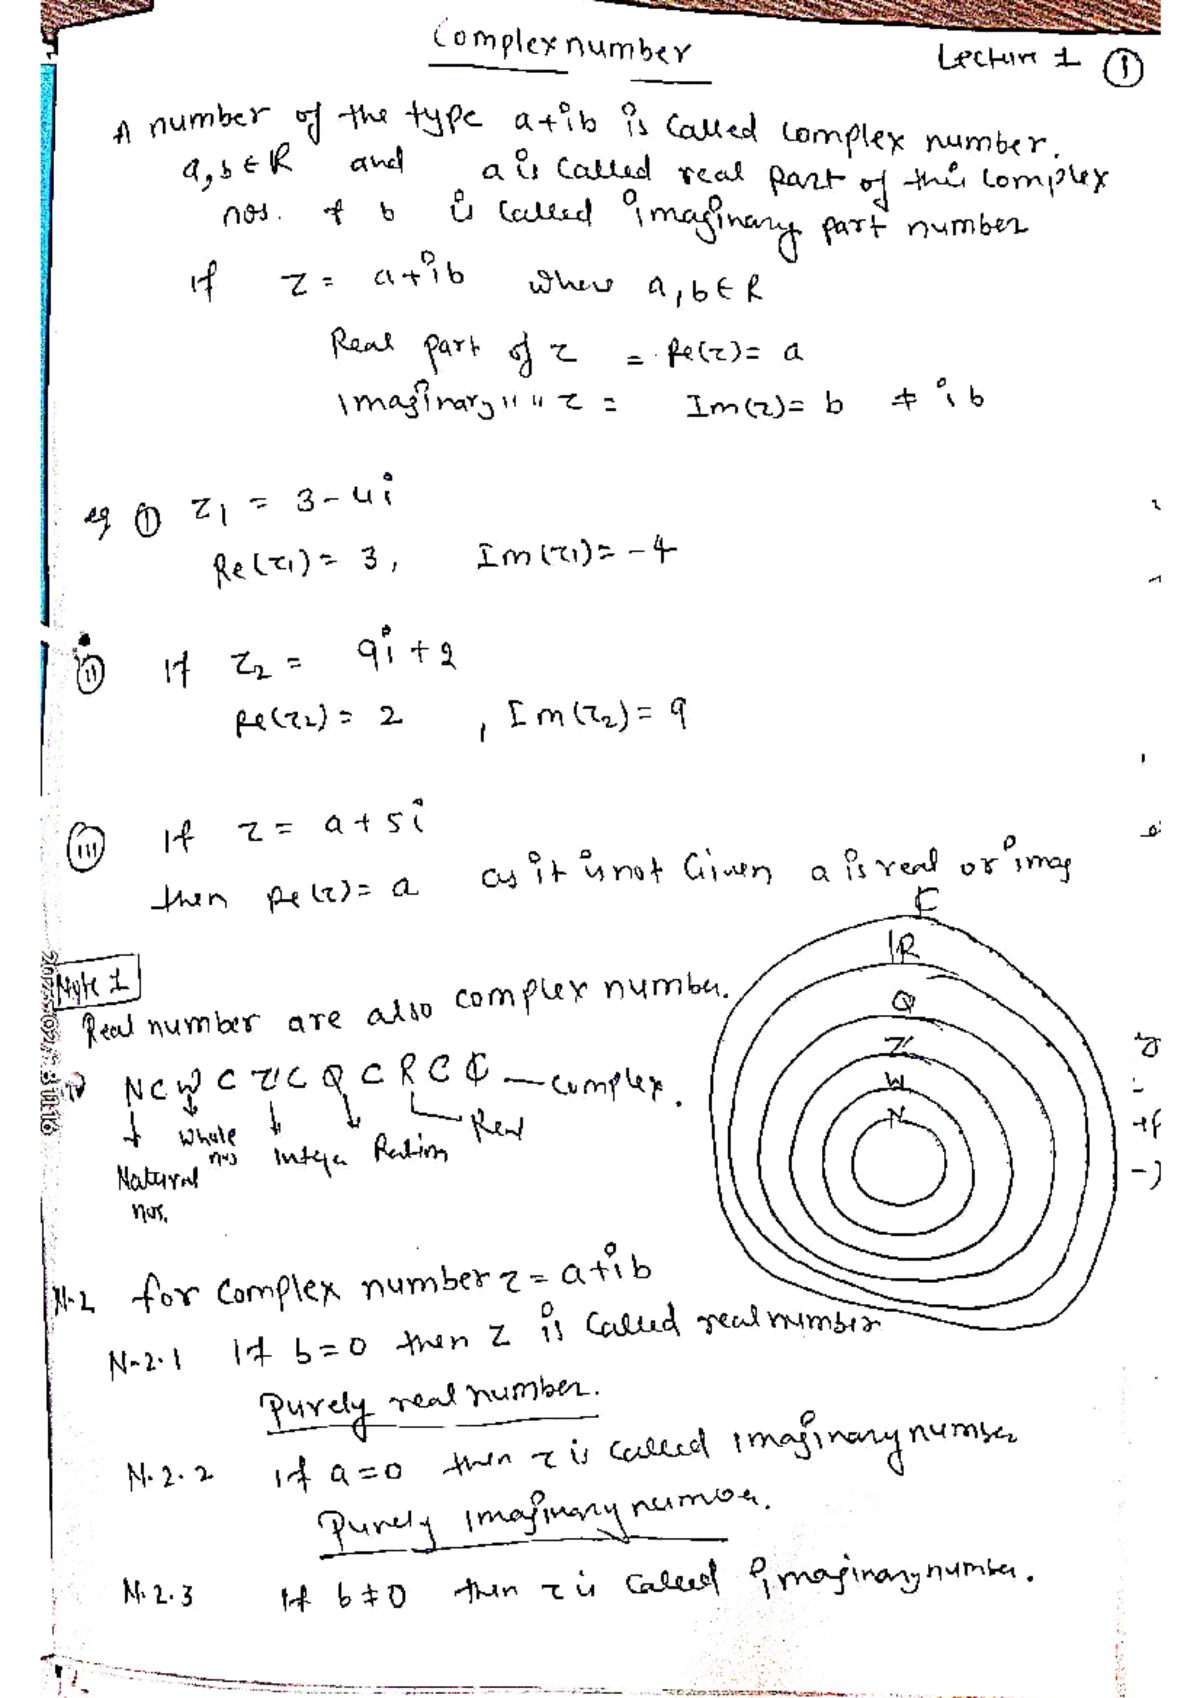 Complex number
Lecture 1 ①
A number of the type a+ib is called complex number.
a,b ∈ R and a is called real part of this complex
nos. & b is called imaginary part number
if z = a+ib where a,b ∈ R
Real part of z = Re(z) = a
Imaginary " " z = Im(z) = b ≠ ib
eg ① z1 = 3-4i
Re(z1) = 3, Im(z1) = -4
(ii) If z2 = 9i+2
Re(z2) = 2 , Im(z2) = 9
(iii) If z = a+5i
then Re(z) = a as it is not Given a is real or imag
₵
IR
Q
Z
W
N
Note 1
Real number are also complex number.
N ⊂ W ⊂ Z ⊂ Q ⊂ R ⊂ ₵ — complex.
Whole nos Integer Ration Real
Natural
nos.
N-2 for complex number z = a+ib
N-2.1 If b=0 then z is called real number
Purely real number.
N.2.2 if a=0 then z is called imaginary number
Purely imaginary number.
N.2.3 If b≠0 then z is called imaginary number.